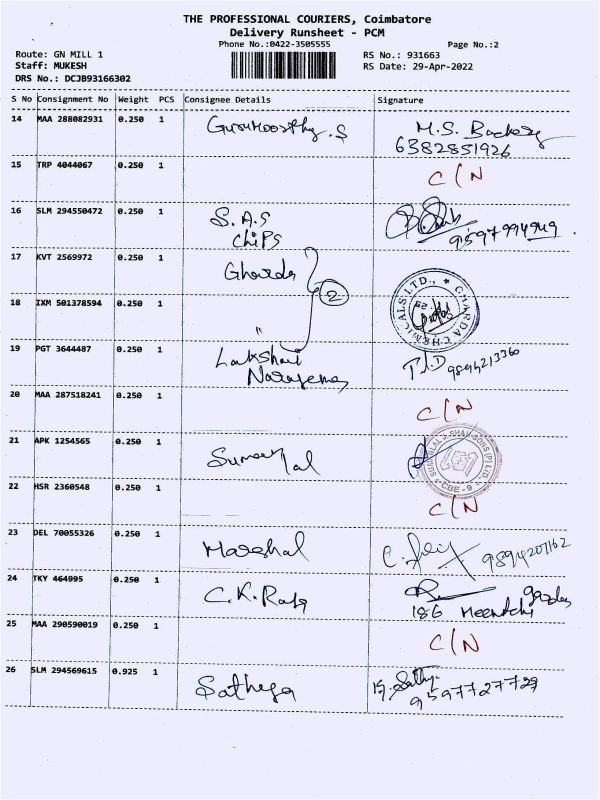 THE PROFESSIONAL COURIERS, Coimbatore
Delivery Runsheet - PCM
Phone No.:0422-3505555
Page No.:2
Route: GN MILL 1
Staff: MUKESH
DRS No.: DCJB93166302
RS No.: 931663
RS Date: 29-Apr-2022
S No Consignment No Weight PCS Consignee Details Signature
14 MAA 288082931 0.250 1 Gurumoorthy.S M.S. Backery
6382851926
15 TRP 4044067 0.250 1 C/N
16 SLM 294550472 0.250 1 S.A.S
chips
9597994949
17 KVT 2569972 0.250 1 Gharda
2
18 IXM 501378594 0.250 1 "
GHARDA CHEMICALS LTD.,
19 PGT 3644487 0.250 1 Lakshmi
Narayana
20 MAA 287518241 0.250 1 C/N
21 APK 1254565 0.250 1 Sumanlal
SUMANLAL J. SHAH SONS (P) LTD.
CBE-9
22 HSR 2360548 0.250 1 C/N
23 DEL 70055326 0.250 1 Marshal 9894207162
24 TKY 464995 0.250 1 C.K. Raja
186 Meenakchi
25 MAA 290590019 0.250 1 C/N
26 SLM 294569615 0.925 1 Sathya
9597727729